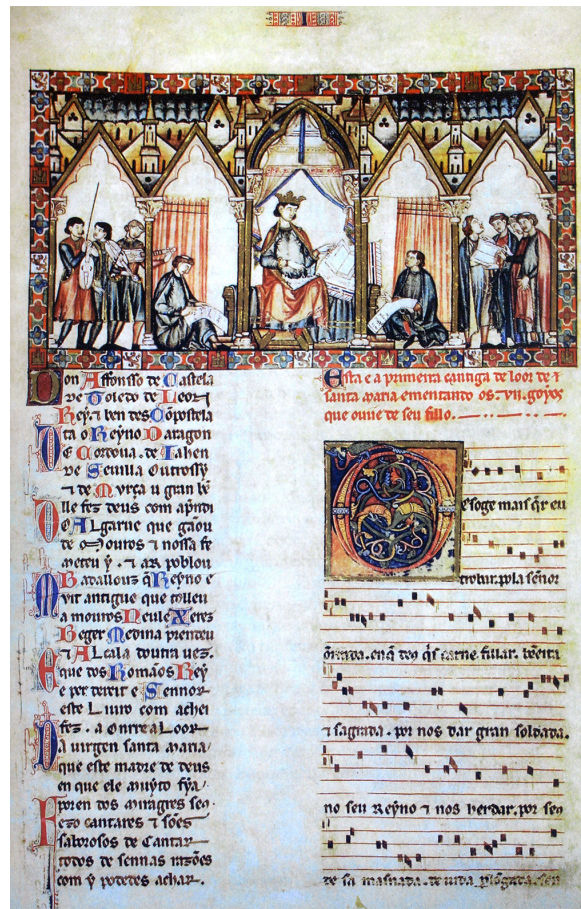 Don Affonsso de Castela
de Toledo de Leon
Rey ⁊ ben des Cõpostela
ta o Reyno Daragon
De Cordova. de Iahen
de Sevilla Outrossy
⁊ de Murça u gran bẽ
lle fez deus com aprẽdi
Do Algarve que gãou
de Mouros ⁊ nossa fe
meteu y. ⁊ ar poblou
Badallouz q̃ Reyno e
Muit antigue que tolleu
a mouros Neul e Xerez
Beger Medina prendeu
⁊ Alcala doutra vez.
Eque dos Romãos Rey
e per dereit e Sennor
este Livro com achei
fez. a Onrr e a Loor
Da virgen santa maria
que este madre de deus
en que ele muyto fya
Poren dos miragres seu
Fezo cantares ⁊ sões
saborosos de Cantar
todos de sennas razões
com y podedes achar.
Esta e a primeira cantiga de loor de
santa maria ementando os. VII. goyos
que ouve de seu fillo.
Desoge mais q̃r eu
trobar. pla sennor
õrrada. en q̃ deus q̃s carne fillar. bẽeita
⁊ sagrada. por nos dar gran soldada.
no seu Reyno ⁊ nos herdar. por seus
de sa masnada. de vida plõgada. sen